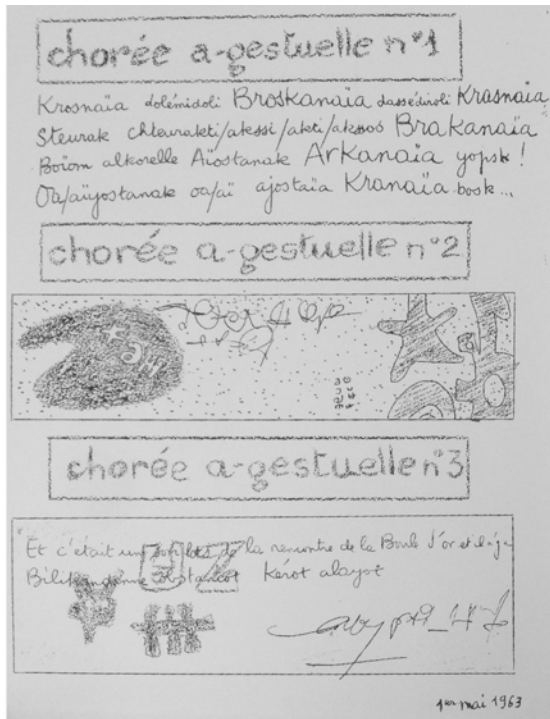 chorée a-gestuelle n°1
Krosnaïa dolémidoli Broskanaïa dassédiroli Krasnaïa
Steurak chleurakti/akessi/aketi/akessos Brakanaïa
Boïom alkorelle Aïostanak Arkanaïa yopsk!
Oa/aïyostanak oa/aï ajostaïa Kranaïa bosk...
chorée a-gestuelle n°2
chorée a-gestuelle n°3
Et c'était un de la rencontre de la Boule d'or et
Kérot
1er mai 1963